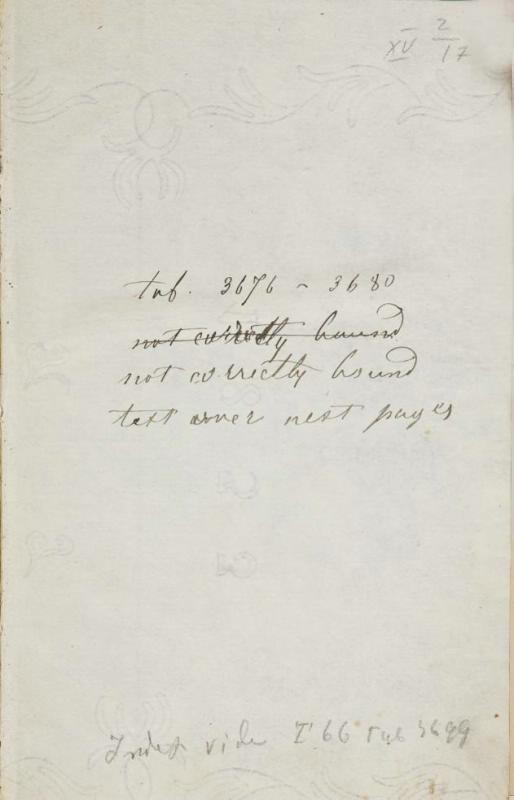 XV 2/17
tab. 3676 - 3680
not correctly bound
not correctly bound
text over next pages
Index vide T 66 Tab 3699